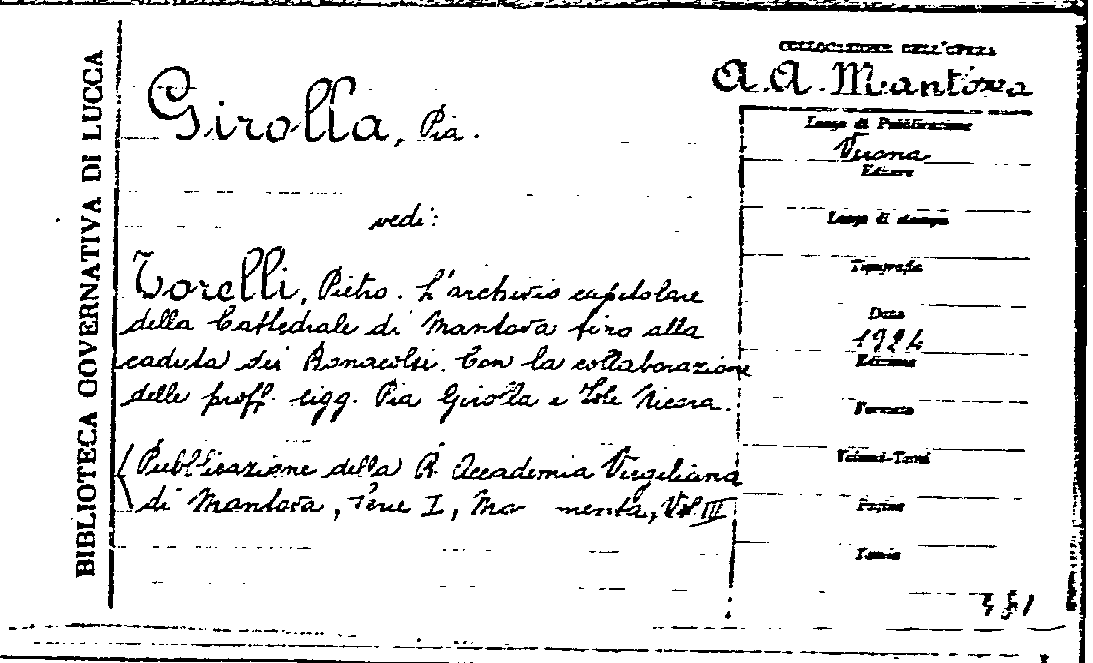 BIBLIOTECA GOVERNATIVA DI LUCCA
Girolla, Pia.
vedi:
Torelli, Pietro. L'archivio capitolare
della Cattedrale di Mantova fino alla
caduta dei Bonacolsi. Con la collaborazione
delle proff. sigg. Pia Girolla e Iole Nicora.
(Pubblicazione della R. Accademia Virgiliana
di Mantova, Serie I, Mo menta, Vol III
COLLOCAZIONE DELL'OPERA
A. A. Mantova
Luogo di Pubblicazione
Verona
Editore
Luogo di stampa
Tipografia
Data
1924
Edizione
Formato
Volumi-Tomi
Pagine